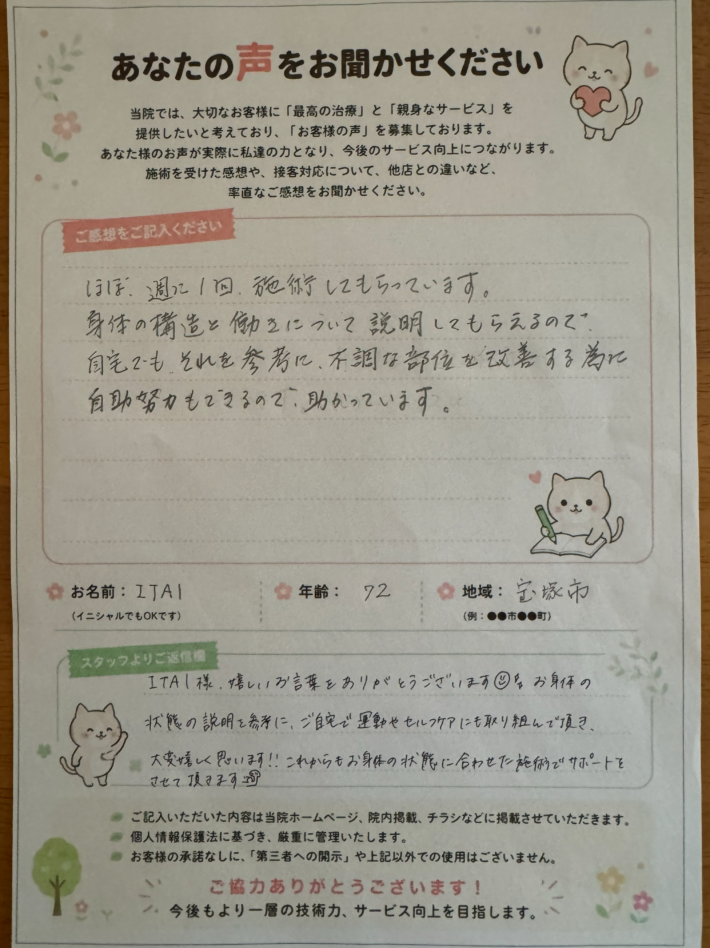 あなたの声をお聞かせください
当院では、大切なお客様に「最高の治療」と「親身なサービス」を
提供したいと考えており、「お客様の声」を募集しております。
あなた様のお声が実際に私達の力となり、今後のサービス向上につながります。
施術を受けた感想や、接客対応について、他店との違いなど、
率直なご感想をお聞かせください。
ご感想をご記入ください
ほぼ、週に1回、施術してもらっています。
身体の構造と働きについて説明してもらえるので、
自宅でも、それを参考に、不調な部位を改善する為に
自助努力もできるので、助かっています。
お名前：ITAI 年齢： 72 地域：宝塚市
（イニシャルでもOKです） （例：●●市●●町）
スタッフよりご返信欄
ITAI様、嬉しいお言葉をありがとうございます お身体の
状態の説明を参考に、ご自宅で運動やセルフケアにも取り組んで頂き、
大変嬉しく思います!! これからもお身体の状態に合わせた施術でサポートを
させて頂きます
ご記入いただいた内容は当院ホームページ、院内掲載、チラシなどに掲載させていただきます。
個人情報保護法に基づき、厳重に管理いたします。
お客様の承諾なしに、「第三者への開示」や上記以外での使用はございません。
ご協力ありがとうございます！
今後もより一層の技術力、サービス向上を目指します。